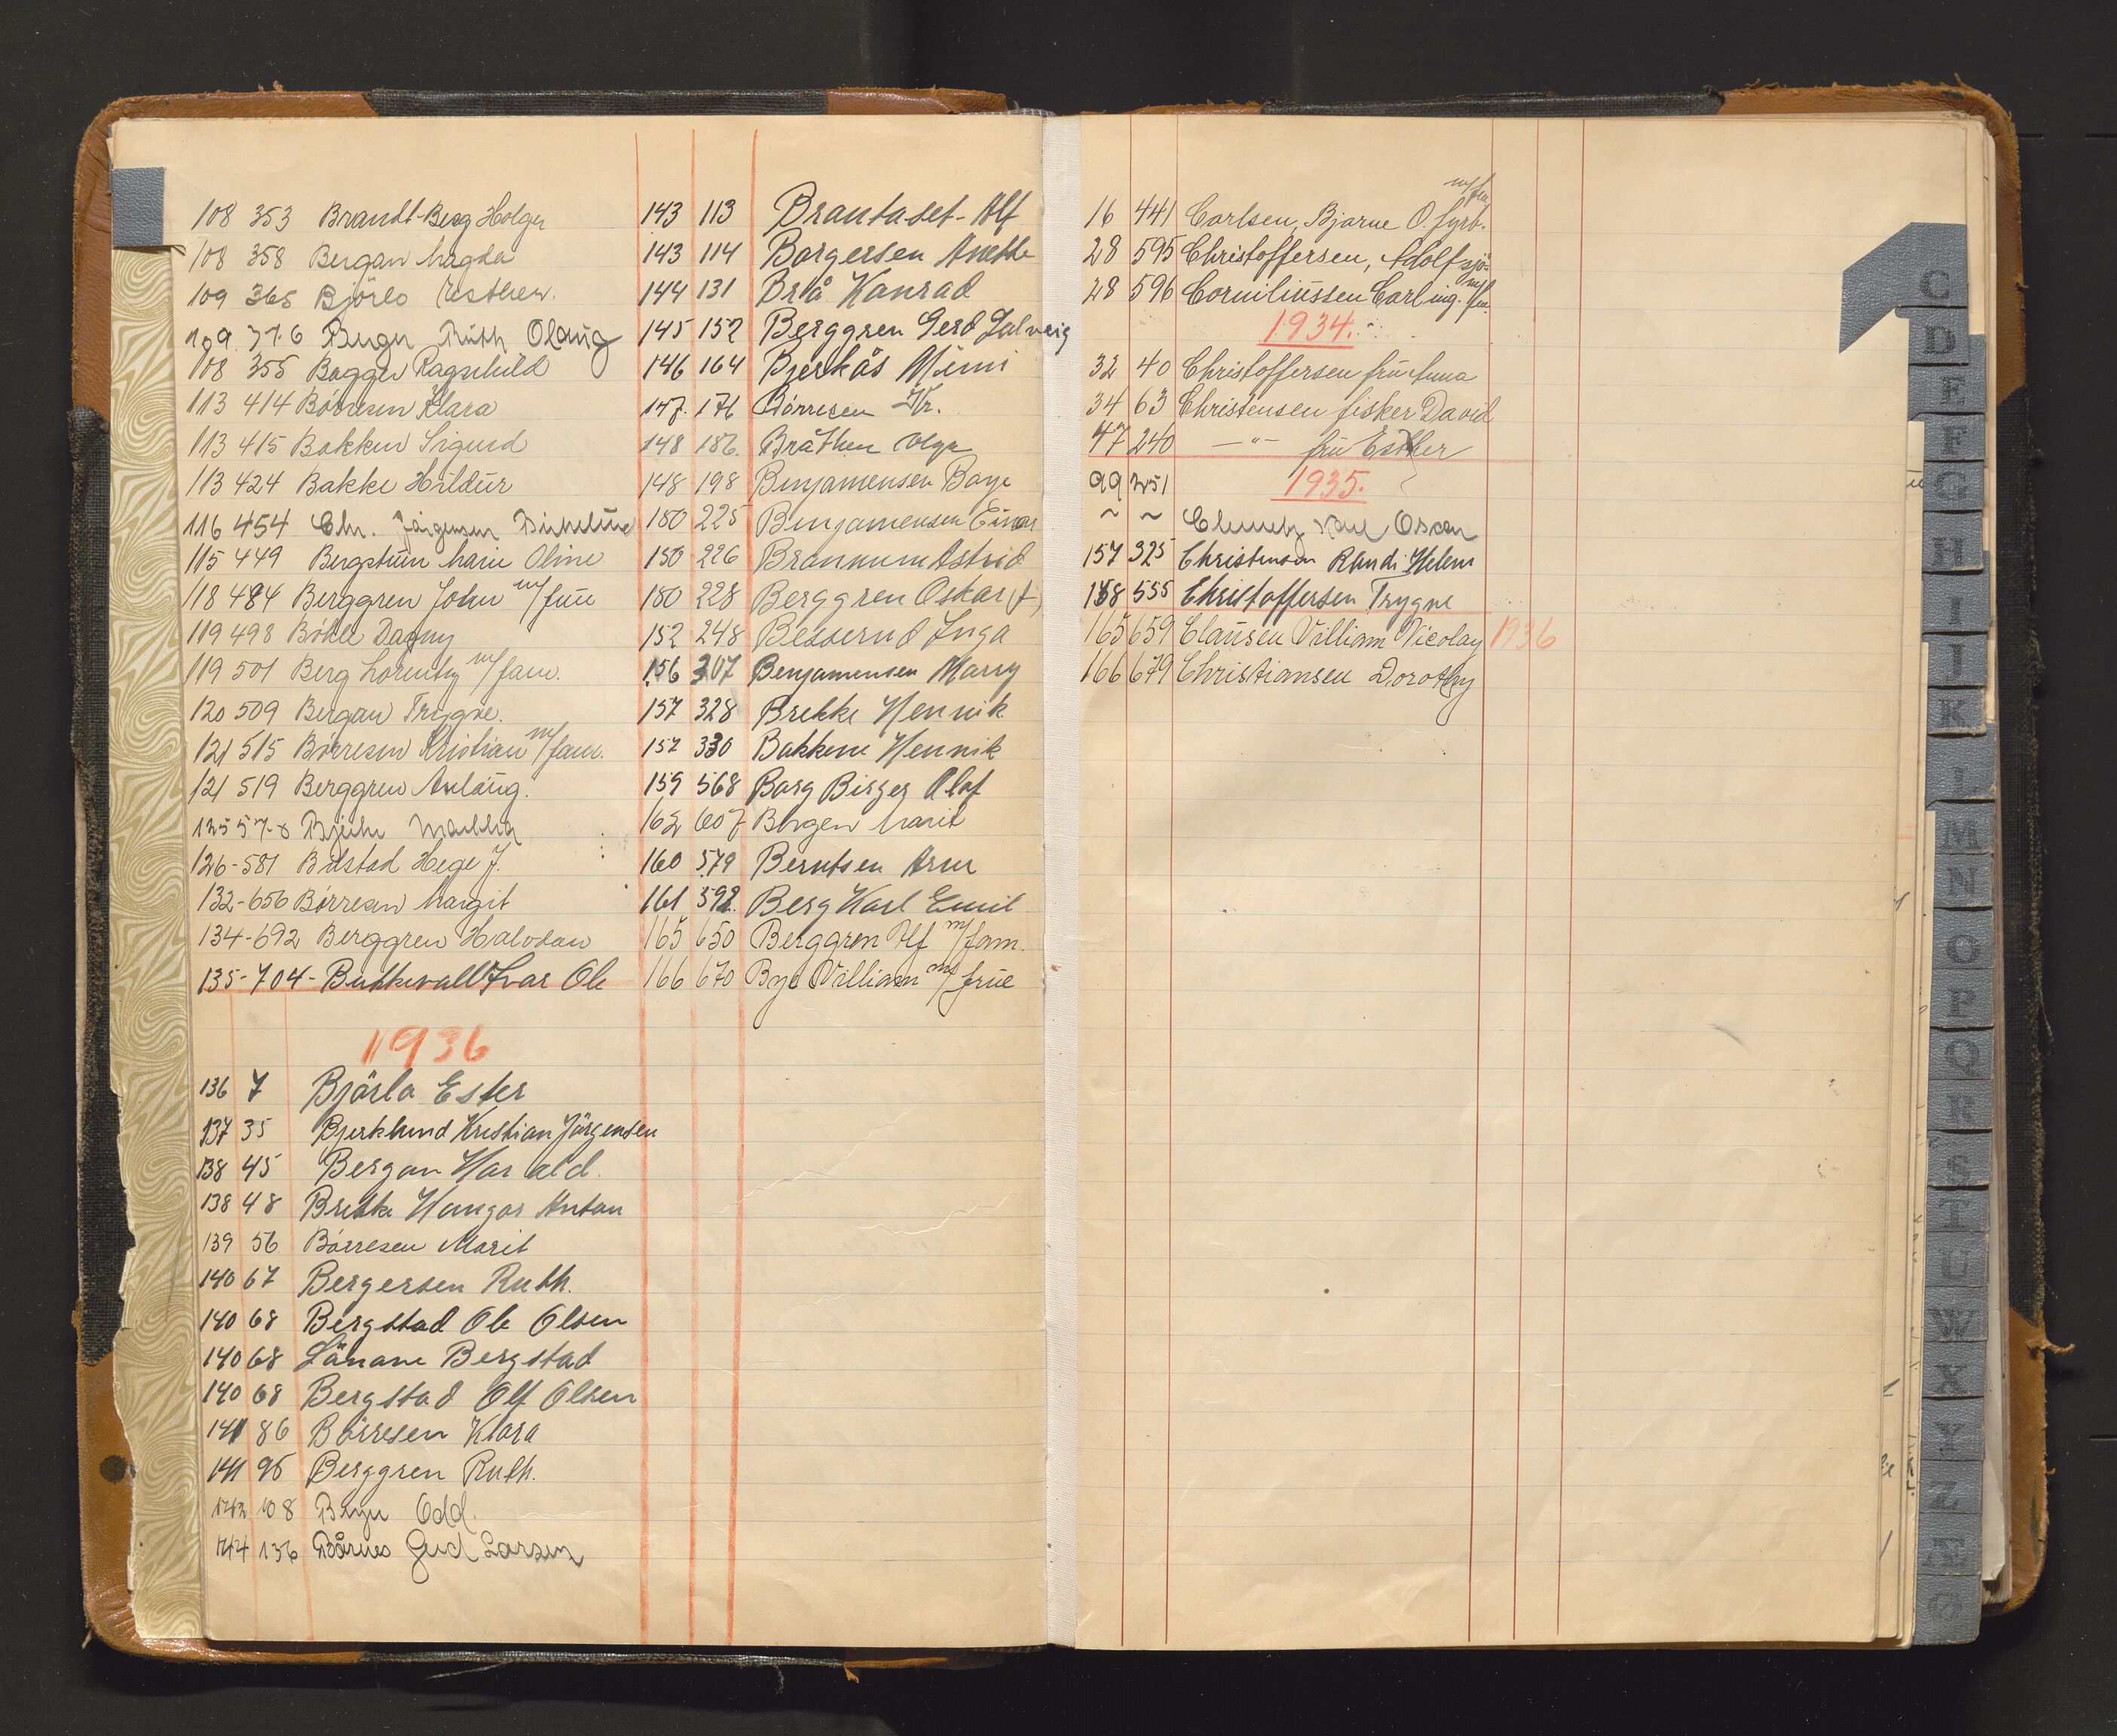 108 353 Brandt-Berg Holger
108 358 Bergan Magda
109 365 Björlo Esther.
109. 376 Berger Ruth Olaug
108 355 Bagger Ragnhild
113 414 Börresen Klara
113 415 Bakken Sigurd
113 424 Bakke Hildur
116 454 Chr. Jörgensen
115 449 Marie Oline
118 484 Berggren John m/frue
119 498 Dagny
119 501 Berg m/fam.
120 509 Bergan Trygve.
121 515 Börresen Kristian m/fam.
121 519 Berggren Aslaug.
125 578
126-581 Hege J.
132-656 Börresen Margit
134-692 Berggren Halvdan
135-704- Ivar Ole
1936
136 7 Björlo Ester
137 35 Bjerklund Kristian Jörgensen
138 45 Bergan Harald.
138 48 Brekke Hangar Anton
139 56 Börresen Marit
140 67 Bergersen Ruth.
140 68 Bergstad Ole Olsen
140 68 Bergstad
140 68 Bergstad Olf Olsen
141 86 Börresen Klara
141 95 Berggren Ruth.
142 108 Odd.
144 136 Gerd Larsen
143 113 Brantaset- Alf
143 114 Borgersen Anette
144 131 Brå Konrad
145 152 Berggren Gerd Solveig
146 164 Bjerkås Mimi
147. 176 Börresen Kr.
148 186. Bråthen Olga
148 198 Benjamensen Borge
150 225 Benjamensen Einar
150 226 Astrid
150 228 Berggren Oskar (f)
152 248 Inga
156 307 Benjamensen Marry
157 328 Brekke Henrik
157 330 Bakkene Henrik
159 568 Borg Birger Olaf
162 607 Borgen Marit
160 579 Berntsen Arne
161 592. Berg Karl Emil
165 650 Berggren Alf m/fam.
166 670 Bye Villiam m/frue
16 441 Carlsen, Bjarne O. fyrb. m/fru
28 595 Christoffersen, Adolf sjö-
28 596 Corniliussen Carl ing. m/fr.
1934.
32 40 Christoffersen fru Anna
34 63 Christensen fisker David
47 240 —"— fru Esther
99 251 1935.
~ ~ Karl Oscar
157 325 Christenson Randi Helene
158 555 Christoffersen Trygve
165 659 Clausen Villiam Nicolay 1936
166 679 Christiansen Dorothy
C
D
E
F
G
H
I
J
K
L
M
N
O
P
Q
R
S
T
U
W
X
Y
Z
Æ
Ø